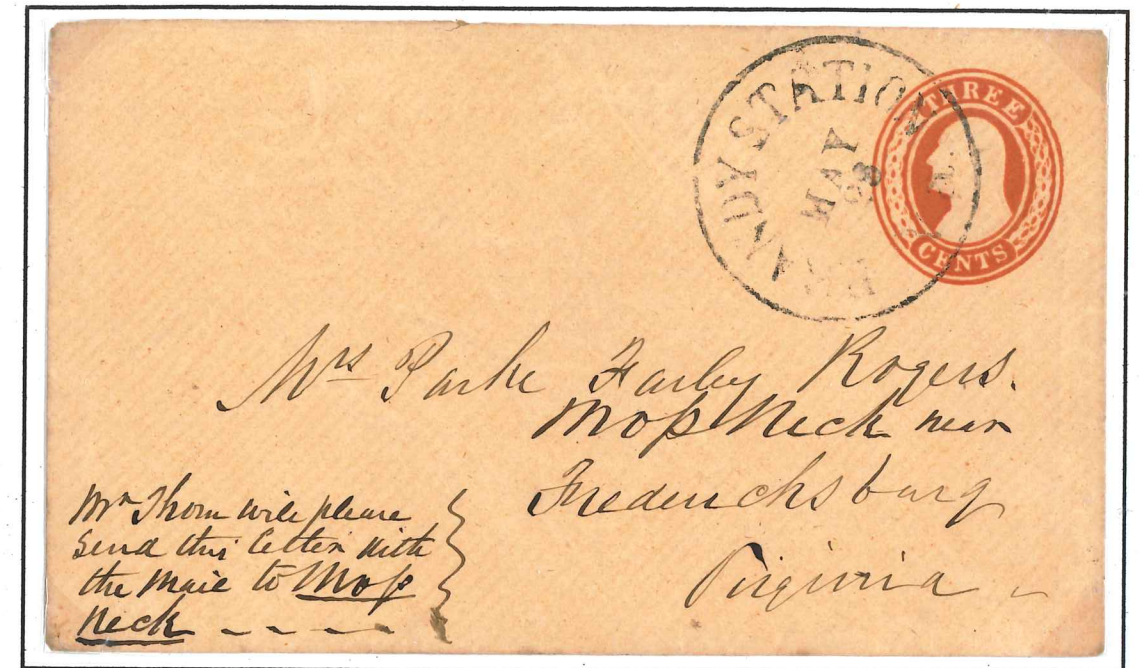 BRANDY STATION
MAY
28
Va.
THREE
CENTS
Mrs Parke Farley Rogers.
Moſs Neck near
Fredericksburg
Virginia
Mr Thom will please
send this letter with
the mail to Moſs
Neck